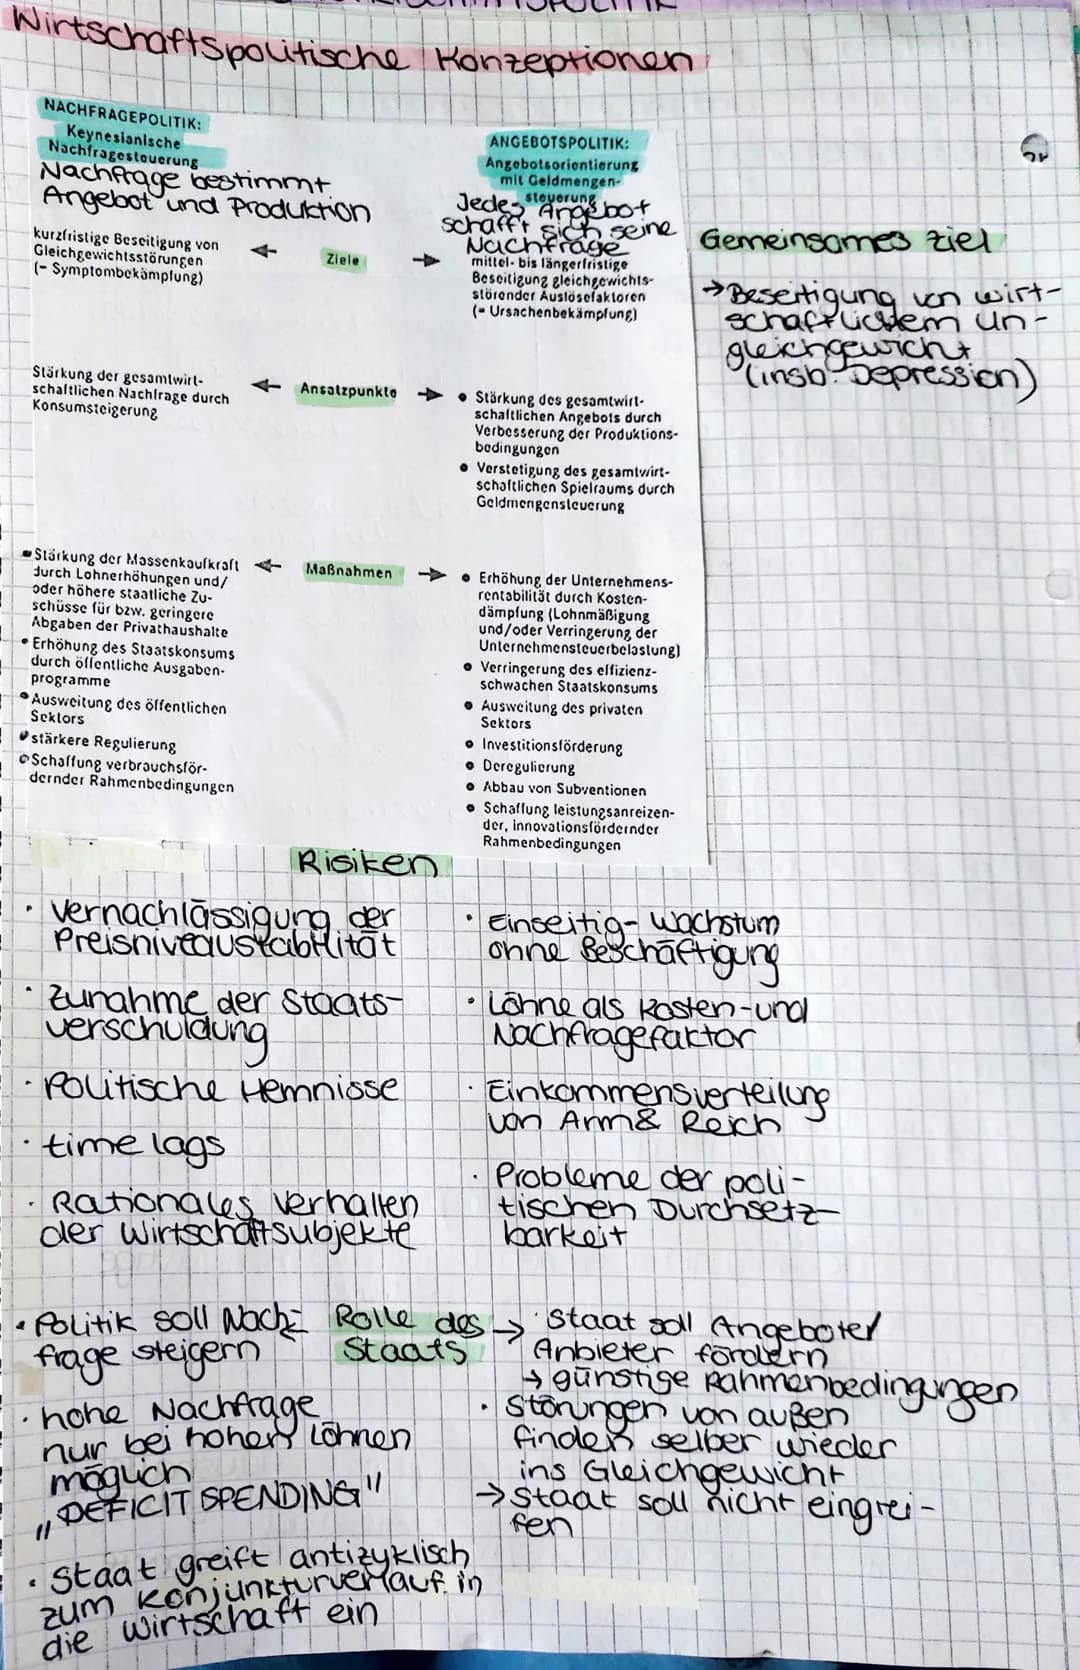 Wirtschaftspolitische Konzeptionen
NACHFRAGEPOLITIK:
Keynesianische
Nachfragesteuerung
Nachfrage bestimmt
Angebot und Produktion
ANGEBOTSPOLITIK:
Angebotsorientierung
mit Geldmengen-
steuerung
Jedes Angebot
schafft sich seine
Nachfrage
kurzfristige Beseitigung von
Gleichgewichtsstörungen
(= Symptombekämpfung)
← Ziele →
mittel- bis längerfristige
Beseitigung gleichgewichts-
störender Auslösefaktoren
(= Ursachenbekämpfung)
Gemeinsames Ziel
→ Beseitigung von wirt-
schaftlichem un-
gleichgewicht
(insb. Depression)
Stärkung der gesamtwirt-
schaftlichen Nachfrage durch
Konsumsteigerung
← Ansatzpunkte →
• Stärkung des gesamtwirt-
schaftlichen Angebots durch
Verbesserung der Produktions-
bedingungen
• Verstetigung des gesamtwirt-
schaftlichen Spielraums durch
Geldmengensteuerung
• Stärkung der Massenkaufkraft
durch Lohnerhöhungen und/
oder höhere staatliche Zu-
schüsse für bzw. geringere
Abgaben der Privathaushalte
• Erhöhung des Staatskonsums
durch öffentliche Ausgaben-
programme
• Ausweitung des öffentlichen
Sektors
• stärkere Regulierung
• Schaffung verbrauchsför-
dernder Rahmenbedingungen
← Maßnahmen →
• Erhöhung der Unternehmens-
rentabilität durch Kosten-
dämpfung (Lohnmäßigung
und/oder Verringerung der
Unternehmensteuerbelastung)
• Verringerung des effizienz-
schwachen Staatskonsums
• Ausweitung des privaten
Sektors
• Investitionsförderung
• Deregulierung
• Abbau von Subventionen
• Schaffung leistungsanreizen-
der, innovationsfördernder
Rahmenbedingungen
Risiken
• Vernachlässigung der
Preisniveaustabilität
• Zunahme der Staats-
verschuldung
• Politische Hemnisse
• time lags
• Rationales Verhalten
der Wirtschaftsubjekte
• Einseitig- Wachstum
ohne Beschäftigung
• Löhne als Kosten- und
Nachfragefaktor
• Einkommensverteilung
von Arm & Reich
• Probleme der poli-
tischen Durchsetz-
barkeit
Rolle des
Staats
• Politik soll Nach-
frage steigern
• hohe Nachfrage
nur bei hohen Löhnen
möglich
„DEFICIT SPENDING"
• Staat greift antizyklisch
zum Konjunkturverlauf in
die Wirtschaft ein
→ • Staat soll Angeboter/
Anbieter fördern
→ günstige Rahmenbedingungen
• Störungen von außen
finden selber wieder
ins Gleichgewicht
→ Staat soll nicht eingrei-
fen